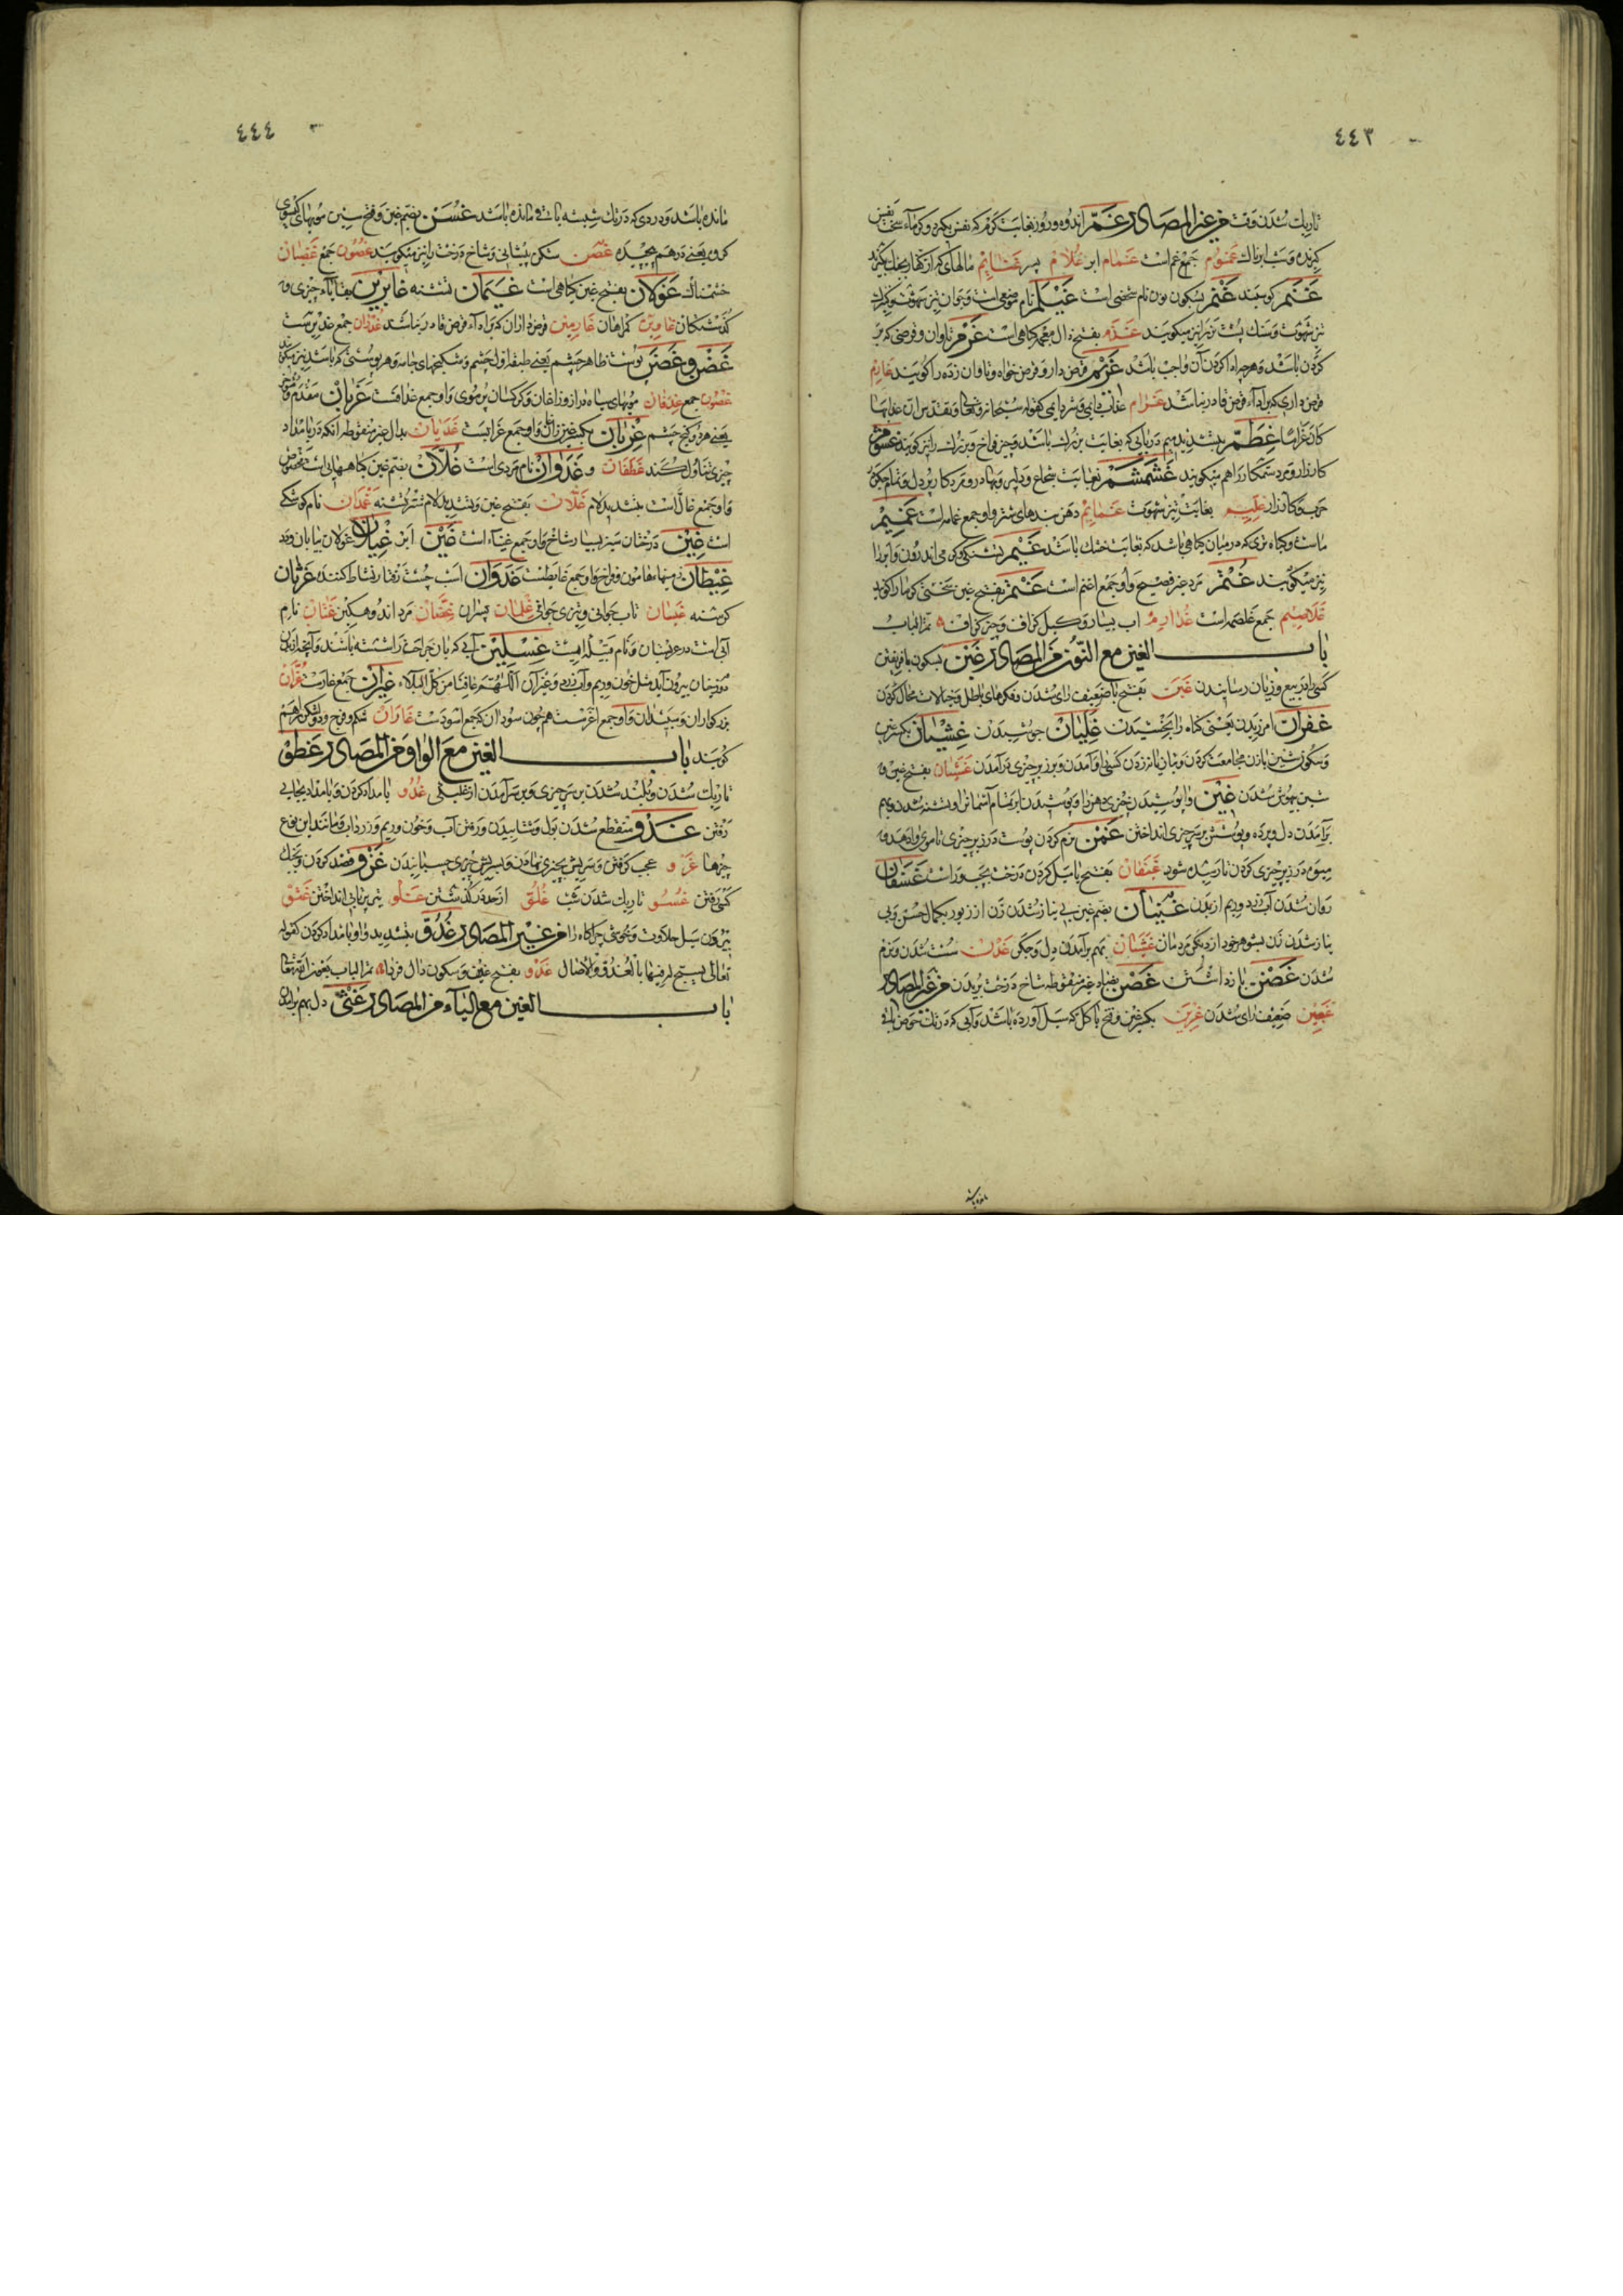 ٤٤٣
تاریك شدن وقت من غیر المصادر غمّ اندوه و روز بغایت گرم که نفس بگیرد و گرماء سخت نفس
گیرنده و شب ابرناك غموم جمع غم است غمام ابر غلام پسر غنایم مالهای که از کفار بغلبه گیرند
غنم گوسبند غنم بسکون نون نام شخصی است غیلم نام موضعی است و جوان تیز شهوت
تیز شهوت و سنك پشت نر را نیز میگویند غذم بفتح ذال معجمه گیاهی است غرم تاوان و قرضی که بر
گردن باشد و هر چه ادا کردن آن واجب باشد غریم قرض دار و قرض خواه و تاوان زده را گویند غارم
قرض داری که بر اداء قرض قادر نباشد غرام عذاب دایمی و شر دایمی کقوله سبحانه و تعالی
کان غراما غطمّ بتشدید میم دریایی که بغایت بزرك باشد و چیز فراخ و بزرك را نیز گویند
کارزار و مرد ستمکار را هم میگویند غشمشم بغایت شجاع و دلیر و بهادر و مرد کار پر دل و تمام
حرب و کارزار غلیم بغایت تیز شهوت غمایم دهن بندهای شتر و او جمع غمامه است غمیم
ماست و گیاه تری که در میان گیاهی باشد که بغایت خشك باشد غیم تشنگی و گرمی اندرون و ابر را
نیز میگویند غتم مرد غیر فصیح و او جمع اغتم است غتم بفتح غین سختی گرما را گویند
غلاصم جمع غلصمه است غذارم اب بسیار و کیل گزاف و چیز گزاف تمّ الباب
باب الغین مع النّون من المصادر غبن بسکون با فریفتن
کسی را در بیع و زیان رسانیدن غبن بفتح با ضعیف رای شدن و فکرهای باطل و خیالات محال کردن
غفران امرزیدن یعنی گناه را بخشیدن غلیان جوشیدن غشیان بکسر غین
و سکون شین با زن مجامعت کردن و تازیانه زدن کسی را و آمدن و بر زبر چیزی در آمدن غشیان بفتح غین و
شین بیهوش شدن غین وا پوشیدن چیزی هنر را و پوشیدن ابر تمام آسمان را و تشنه شدن و بهم
برآمدن دل و پرده و پوشش بر سر چیزی انداختن غمن نرم کردن پوست در زیر چیزی تا موی وا دهد و
میوه در زیر چیزی کردن تا رسیده شود غیفان بفتح یا میل کردن درخت بچپ و راست غسقان
روان شدن آب زرد و ریم از بدن غنیان بضم غین بی نیاز شدن زن از زیور بکمال حسن و بی
نیاز شدن زن بشوهر خود از دیگر مردمان غثیان بهم برآمدن دل و جگر غدن سست شدن و نرم
شدن غصن باز داشتن غصن بصاد غیر منقوطه شاخ درخت بریدن من غیر المصادر
غبین ضعیف رای شدن غرین بکسر غین و فتح یا گل که سیل آورده باشد و آبی که در تك حوض باقی
٤٤٤
مانده باشد و دردی که در تك شیشه باقی مانده باشد غسن بضم غین و فتح سین مویهای گیسوی
کرده یعنی درهم پیچیده غضن شکن پیشانی و شاخ درخت را نیز میگویند غصون جمع غضبان
خشمناك غولان بفتح غین گیاهی است غیمان تشنه غابرین بقایاء چیزی و
گذشتگان غاوین گمراهان غارمین قرض داران که بر اداء قرض قادر نباشند غدران جمع غدیرست
غضن و غضن پوست ظاهر چشم یعنی طبقه اول چشم و شکنجهای جامه و هر پوستی که باشد نیز میگویند
غضون جمع غدفان مویهای سیاه دراز و زاغان و کرکسان پر موی و او جمع غدافست غربان مقدم
یعنی هر دو کنج چشم غربان بکسر غین زاغان و او جمع غرابست غدیان بدال غیر منقوطه آنکه در بامداد
چیزی تناول کند غطفان و غدوان نام مردی است غلّان بضم غین گیاههایی است مخصوص
و او جمع غالّ است بتشدید لام غلّان بفتح غین و تشدید لام شتر تشنه غمدان نام کوشکی
است غین درختان سبز بسیار شاخ و آن جمع غیناء است غین ابر غیلان غولان بیابان و
غیطان زمینهاء هامون و فراخ و او جمع غایطست غدوان اسب چست رفتار نشاط کننده غرثان
گرسنه غیسان تاب جوانی و تیزی جوانی غلمان پسران غمّان مرد اندوهگین غسّان نام
آبی است در عربستان و نام قبیله ایست غسلین آبی که بآن جراحت را شسته باشند و آنچه از تن
دوزخیان بیرون آید مثل خون و ریم و آب زرد و غیر آن اللّهم عافنا من کل البلاء غیران جمع غارست غرّان
بزرگواران و سپیدان و او جمع اغرّست همچون سودان که جمع اسودست غاران شکم و فرج و دو لشکر را هم
گویند باب الغین مع الواو من المصادر غطو
تاریك شدن و بلند شدن بر سر چیزی و بر سر آمدن از غلبگی غدوّ بامداد کردن و بامداد بجایی
رفتن غذو منقطع شدن بول و شتابیدن و رفتن آب و خون و ریم و زرداب و مانند این نوع
چیزها غرو عجب گرفتن و سریش بچیزی نهادن و بسریش چیزی چسبانیدن غزو قصد کردن و بجنك
کسی رفتن غسوّ تاریك شدن شب غلوّ از حد در گذشتن غلو تیر پرتابی انداختن
بیرون سیل حلاوت و خوشی چراگاه را من غیر المصادر غدوّ بتشدید واو بامداد کردن کقوله
تعالی یسبح له فیها بالغدوّ والآصال غدو بفتح غین و سکون دال فردا تمّ الباب بعون الله تعالی
باب الغین مع الیاء من المصادر غثی دل بهم برآمدن